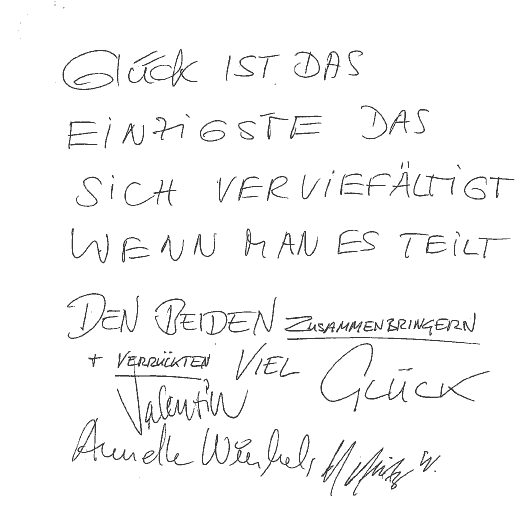 Glück IST DAS
EINZIGSTE DAS
SICH VERVIEFÄLTIGT
WENN MAN ES TEILT
DEN BEIDEN ZUSAMMENBRINGERN
+ VERRÜCKTEN VIEL GLÜCK
Valentin